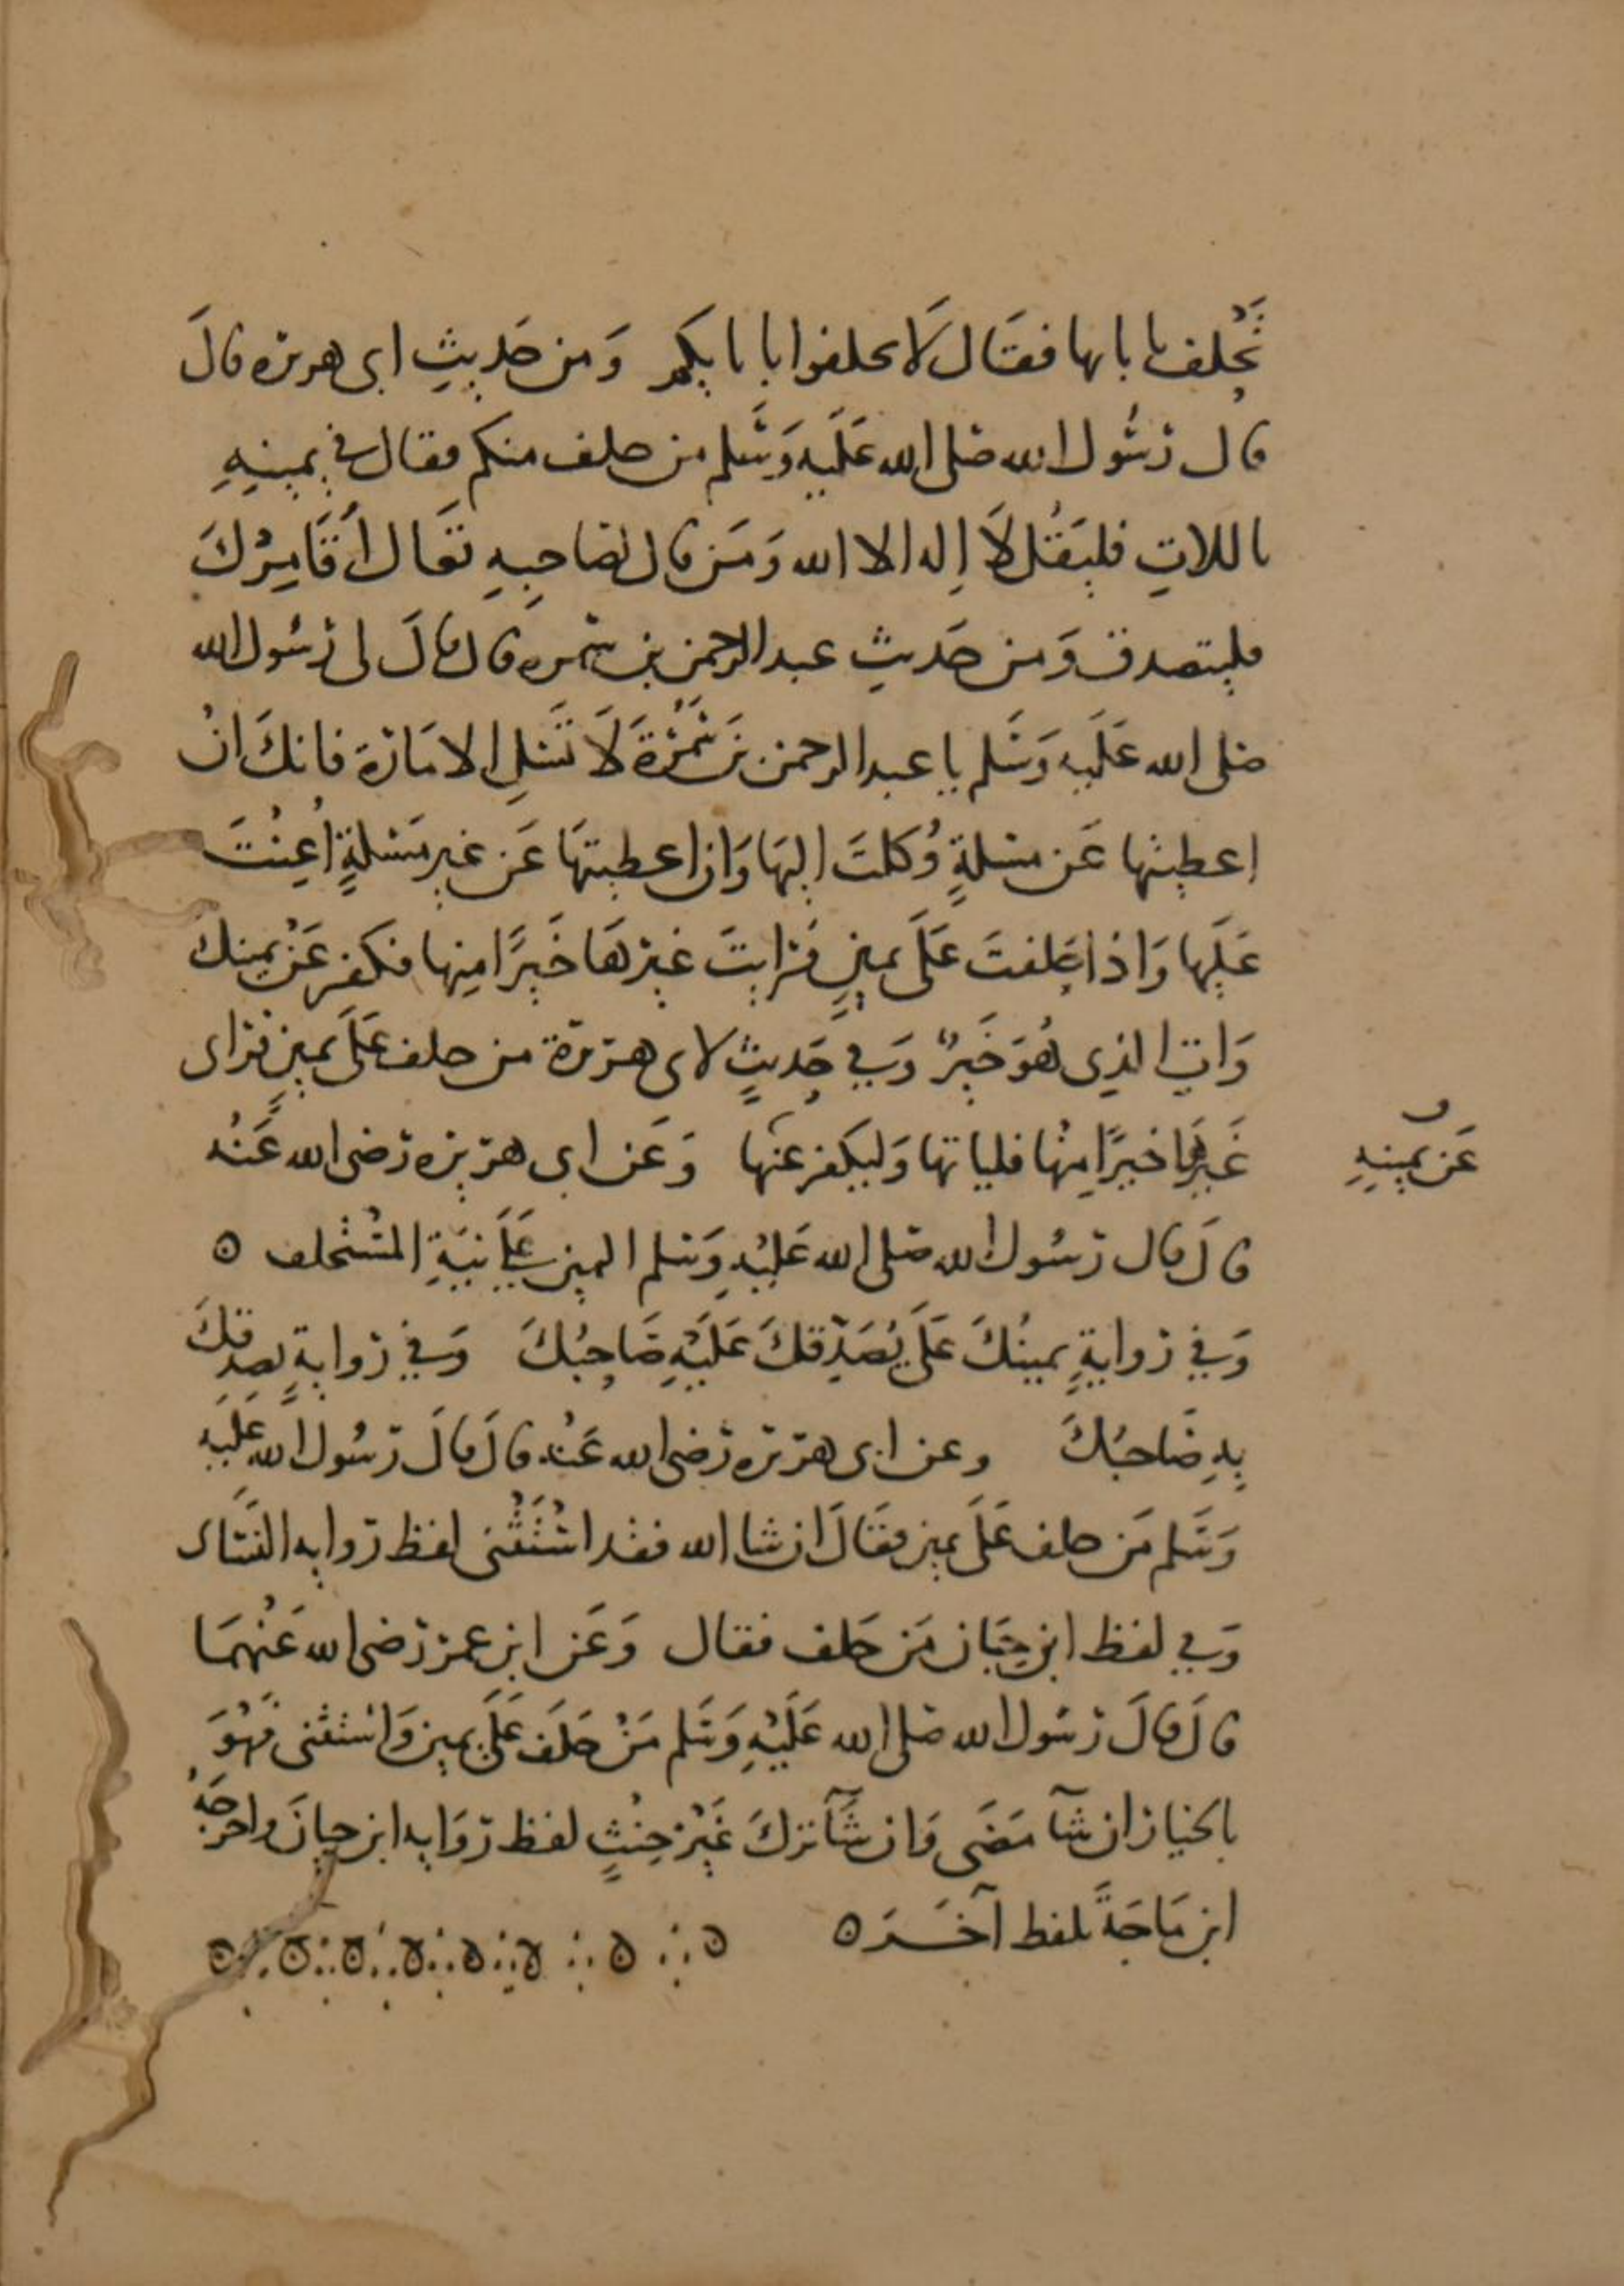 تَحْلف بابايها فقَال لَا تحلفوا بابايكُم وَمن حَديثِ ابى هريرة قالَ
قال رسُول الله صَلى الله عَلَيهِ وَسَلم من حلف منكم فقال في يمينِهِ
باللاتِ فليَقُل لَا اِله الا الله وَمَن قال لصَاحِبِهِ تعَال أقَامِرْكَ
فليتصدق وَمن حَديثِ عبد الرحمن بن سمره قال قالَ لى رسُول الله
صَلى الله عَلَيه وَسَلم يا عبد الرحمن بن سَمُرَةَ لَا تَسَلِ الامَارَةَ فانكَ انْ
اعطيتها عَن مسلةٍ وُكلتَ اليهَا وَان اعطيتهَا عَن غيرِ مَسْلةٍ اُعِنْتَ
عَلَيها وَاذا حَلفتَ عَلَى يمينٍ فرَايتَ غَيرهَا خَيرًا منِها فكفر عَنْ يمينك
وَات الذِى هُوَ خَيرٌ وَفي حَديثٍ لابى هريرة من حلف عَلَى يمينٍ فرَاى
غَيرهَا خيرًا مِنْها فلياتها وَليكفر عنها وَعَن ابى هريره رَضى الله عَنْه
قالَ قال رسُول الله صَلى الله عَليْهِ وَسَلم اليمين عَلَى نيةِ المسْتحلف ه
وَفي رواية يمينُكَ عَلَى يُصَدِّقكَ عَلَيْهِ صَاحِبُكَ وَفي روايةٍ يصدقكَ
بِهِ صَاحبُكَ وعن ابى هريره رَضى الله عَنْه قالَ قالَ رسُول الله عَلَيه
وَسَلم مَن حلف عَلَى يمين فقَالَ ان شا الله فقد اسْتَثْنى لفظ روايه النسَاى
وَفي لفظ ابن حِبَان مَن حَلف فقال وَعَن ابن عمر رَضى الله عَنْهمَا
قالَ قالَ رسُول الله صَلى الله عَلَيْهِ وَسَلم مَنْ حَلَف عَلَى يمين وَاسْتثنى فهُوَ
بالخيار ان شآ مَضَى وَان شآ تركَ غَيْر حِنْثٍ لفظ روَايه ابن حبانَ واخرجَهُ
ابن مَاجَة بلفظ آخَر ه
عَن يمينِهِ